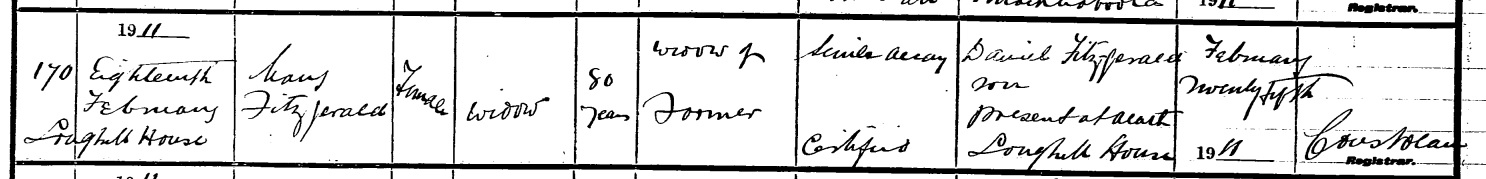 1911
170
Eighteenth
February
Loughill House
Mary
Fitzgerald
Female
Widow
80
years
Widow of
Farmer
Senile decay
Certified
David Fitzgerald
son
present at death
Loughill House
February
Twenty fifth
1911
Registrar.
Registrar.
1911